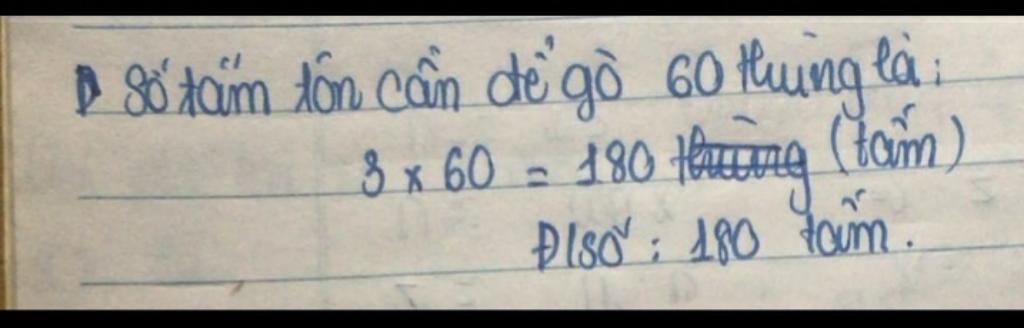 Số tấm tôn cần để gò 60 thùng là:
3 x 60 = 180 thùng (tấm)
Đ/số: 180 tấm.